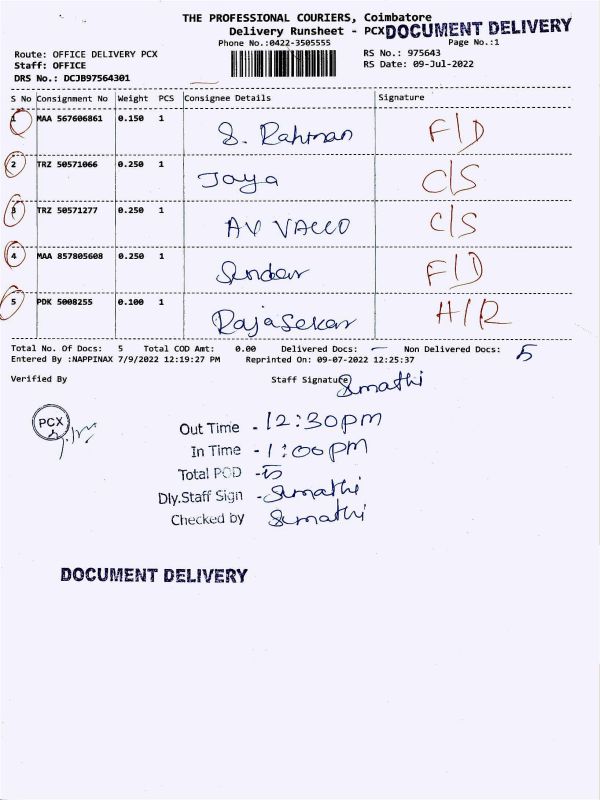 THE PROFESSIONAL COURIERS, Coimbatore
Delivery Runsheet - PCX DOCUMENT DELIVERY
Phone No.:0422-3505555 Page No.:1
Route: OFFICE DELIVERY PCX RS No.: 975643
Staff: OFFICE RS Date: 09-Jul-2022
DRS No.: DCJB97564301
S No Consignment No Weight PCS Consignee Details Signature
1 MAA 567606861 0.150 1 S. Rahman F/D
2 TRZ 50571066 0.250 1 Jaya C/S
3 TRZ 50571277 0.250 1 AV VACCO C/S
4 MAA 857805608 0.250 1 Sundar F/D
5 PDK 5008255 0.100 1 Rajasekar H/R
Total No. Of Docs: 5 Total COD Amt: 0.00 Delivered Docs: - Non Delivered Docs: 5
Entered By :NAPPINAX 7/9/2022 12:19:27 PM Reprinted On: 09-07-2022 12:25:37
Verified By Staff Signature Sumathi
PCX
Out Time - 12:30pm
In Time - 1:00pm
Total POD - 5
Dly.Staff Sign - Sumathi
Checked by Sumathi
DOCUMENT DELIVERY